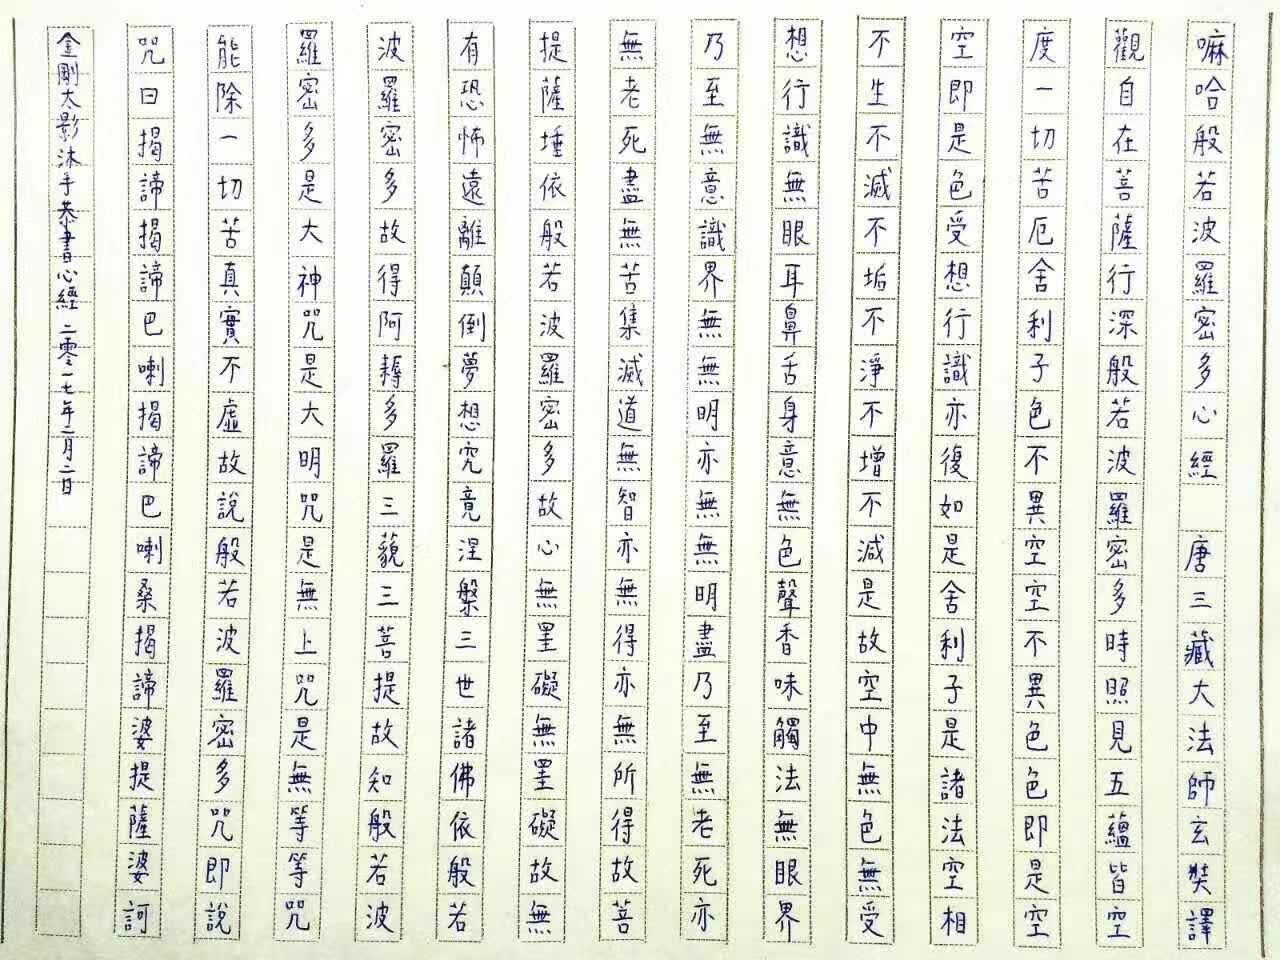 嘛哈般若波羅密多心經 唐三藏大法師玄奘譯
觀自在菩薩行深般若波羅密多時照見五蘊皆空
度一切苦厄舍利子色不異空空不異色色即是空
空即是色受想行識亦復如是舍利子是諸法空相
不生不滅不垢不淨不增不減是故空中無色無受
想行識無眼耳鼻舌身意無色聲香味觸法無眼界
乃至無意識界無無明亦無無明盡乃至無老死亦
無老死盡無苦集滅道無智亦無得亦無所得故菩
提薩埵依般若波羅密多故心無罣礙無罣礙故無
有恐怖遠離顛倒夢想究竟涅槃三世諸佛依般若
波羅密多故得阿耨多羅三藐三菩提故知般若波
羅密多是大神咒是大明咒是無上咒是無等等咒
能除一切苦真實不虛故說般若波羅密多咒即說
咒曰揭諦揭諦巴喇揭諦巴喇桑揭諦婆提薩婆訶
金剛太影沐手恭書心經 二零一七年一月二日